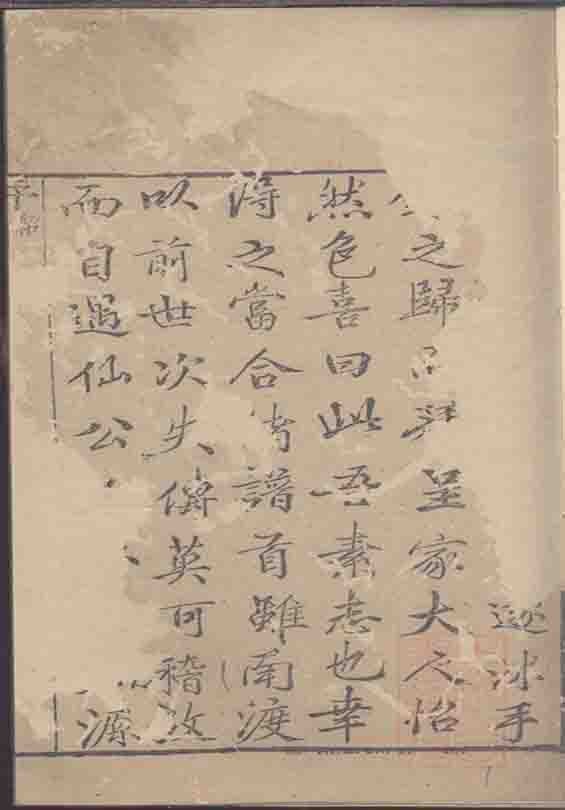 沐手
之歸呈家大人怡
然色喜曰此吾素志也幸
得之當合譜首雖南渡
以前世次失傳莫可稽攷
而自仙公源